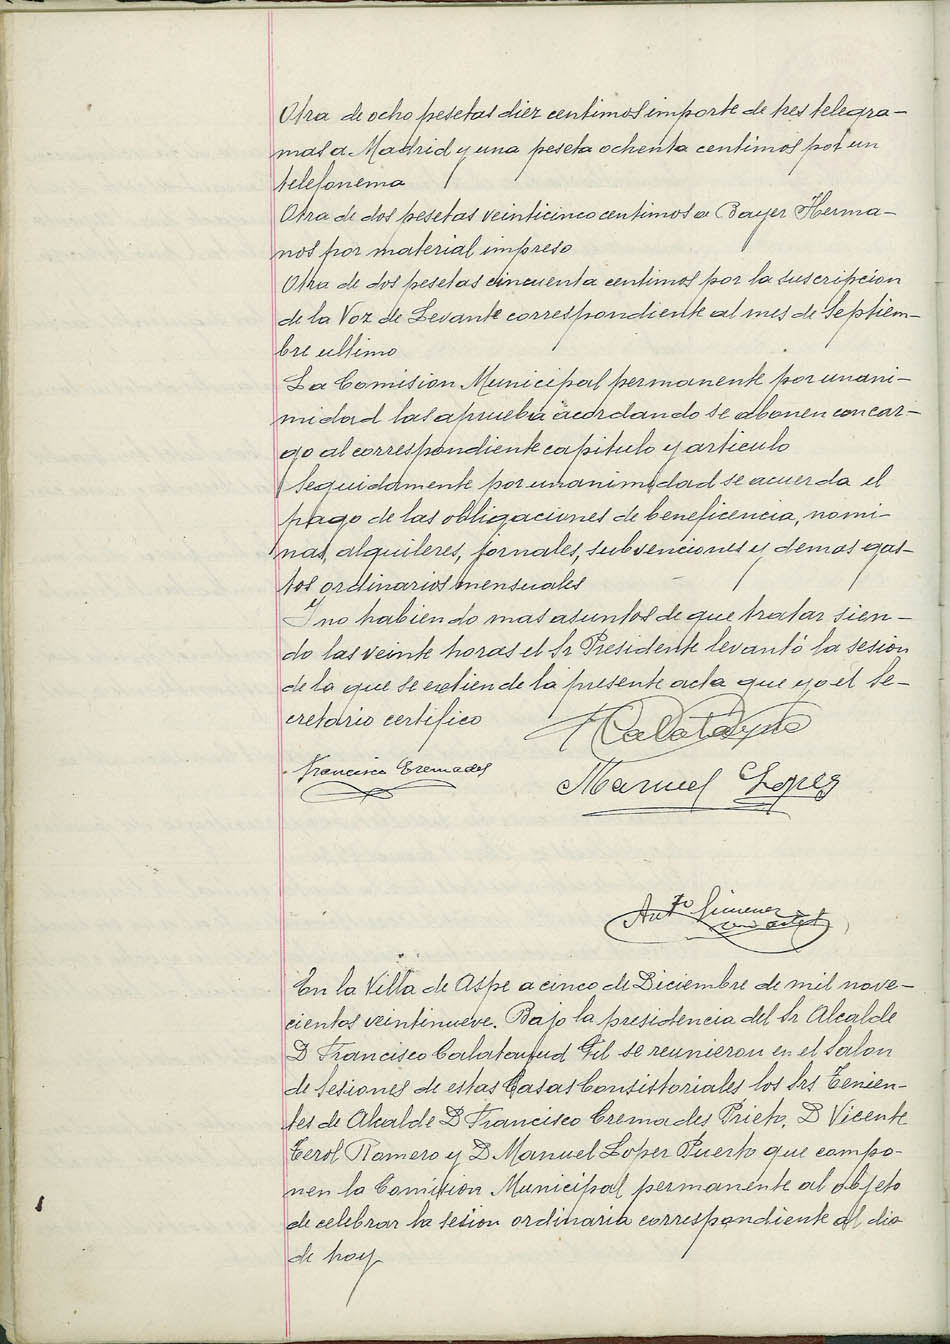 Otra de ocho pesetas diez centimos importe de tres telegra-
mas a Madrid y una peseta ochenta centimos por un
telefonema
Otra de dos pesetas veinticinco centimos a Bayer Herma-
nos por material impreso
Otra de dos pesetas cincuenta centimos por la suscripcion
de la Voz de Levante correspondiente al mes de Septiem-
bre ultimo
La Comision Municipal permanente por unani-
midad las aprueba acordando se abonen con car-
go al correspondiente capitulo y articulo
Seguidamente por unanimidad se acuerda el
pago de las obligaciones de beneficencia, nomi-
nas, alquileres, jornales, subvenciones y demas gas-
tos ordinarios mensuales
Y no habiendo mas asuntos de que tratar sien-
do las veinte horas el Sr Presidente levantó la sesion
de la que se extiende la presente acta que yo el Se-
cretario certifico
Calatayud
Francisco Cremades
Manuel Lopez
Antº Gimenez
En la Villa de Aspe a cinco de Diciembre de mil nove-
cientos veintinueve. Bajo la presidencia del Sr Alcalde
D Francisco Calatayud Gil se reunieron en el Salon
de Sesiones de estas Casas Consistoriales los Srs Tenien-
tes de Alcalde D Francisco Cremades Prieto, D Vicente
Terol Romero y D Manuel Lopez Puerto que compo-
nen la Comision Municipal permanente al objeto
de celebrar la sesion ordinaria correspondiente al dia
de hoy